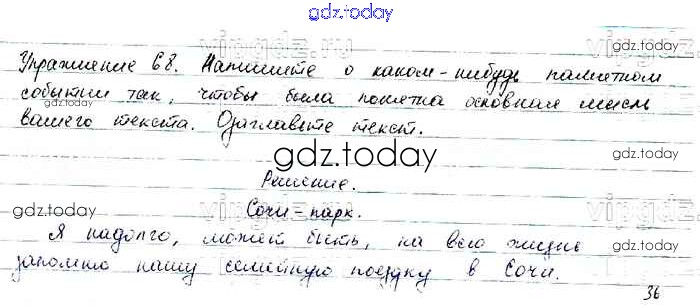 gdz.today
Упражнение 68. Напишите о каком-нибудь памятном
событии так, чтобы была понятна основная мысль
вашего текста. Озаглавьте текст.
gdz.today
Решение.
Сочи-парк.
Я надолго, может быть, на всю жизнь
запомню нашу семейную поездку в Сочи.
36